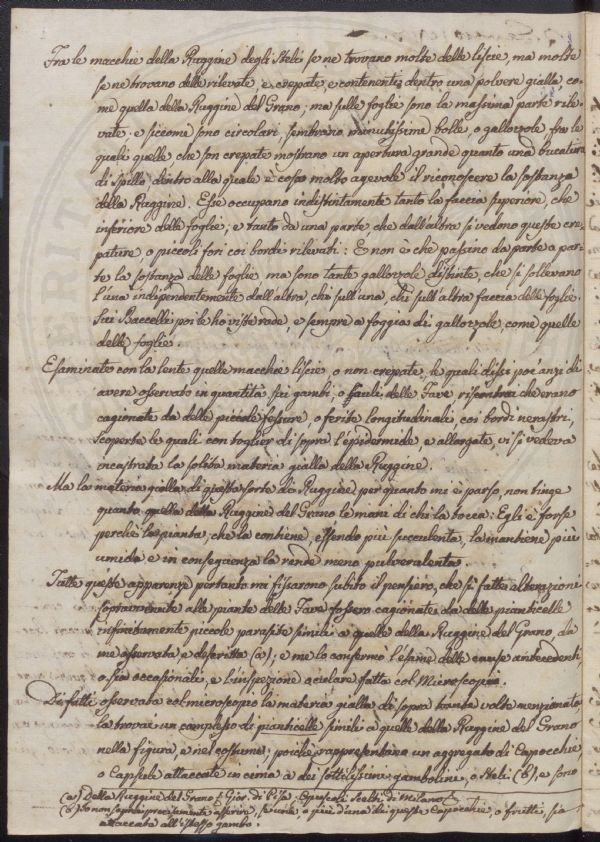 Fra le macchie della Ruggine degli Steli se ne trovano molte delle liscie, ma molte
se ne trovano delle rilevate, e crepate, e contenenti dentro una polvere gialla, co-
me quella della Ruggine del Grano; ma sulle foglie sono la massima parte rile-
vate, e siccome sono circolari, sembrano minutissime bolle, o gallozzole, fra le
quali quelle che son crepate mostrano un apertura grande quanto una bucatura
di spillo, dentro alla quale è cosa molto agevole il riconoscere la sostanza
della Ruggine. Esse occupano indistintamente tanto la faccia superiore, che
inferiore delle foglie; e tanto da una parte, che dall'altra si vedono queste cre-
pature, o piccoli fori coi bordi rilevati: E non è che passino da parte a par-
te la sostanza delle foglie ma sono tante gallozzole distinte, che si sollevano
l'una indipendentemente dall'altra, chi sull'una, chi sull'altra faccia delle foglie.
Sui Baccelli poi le ho viste rade, e sempre a foggia di gallozzole, come quelle
delle foglie.
Esaminate con la lente quelle macchie liscie, o non crepate, le quali dissi poc'anzi di
avere osservato in quantità sui gambi, o steli delle Fave riscontrai che erano
cagionate da delle piccole fessure, o ferite longitudinali, coi bordi nerastri,
scoperte le quali con toglier di sopra l'epidermide e allargate, vi si vedeva
incastrata la solita materia gialla della Ruggine.
Ma la materia gialla di questa sorte di Ruggine, per quanto mi è parso, non tinge
quanto quella della Ruggine del Grano le mani di chi la tocca: Egli è forse
perchè la pianta, che la contiene, essendo più succulenta, la mantiene più
umida e in conseguenza la rende meno pulverulenta.
Tutte queste apparenze pertanto mi fissarono subito il pensiero, che sì fatta alterazione
sopravveniente alle piante delle Fave fossero cagionate da delle pianticelle
infinitamente piccole parasite simili a quelle della Ruggine del Grano, da
me osservata, e descritta (a); e me lo confermò l'esame delle cause antecedenti
o sia occasionali, e l'inspezione oculare fatta col Microscopio.
Di fatti osservata col microscopio la materia gialla di sopra tante volte menzionata
la trovai un complesso di pianticelle simili a quelle della Ruggine del Grano
nella figura, e nel costume; poichè rappresentano un aggregato di Capocchie,
o Capsule attaccate in cima a dei sottilissimi gambolini, o steli (b), e sono
(a) Della Ruggine del Grano Gior. di Pisa, Opuscoli Scelti di Milano
(b) Io non saprei precisamente asserire, se una, o più d'una di queste Capocchie, o frutti, sia
attaccata all'istesso gambo.